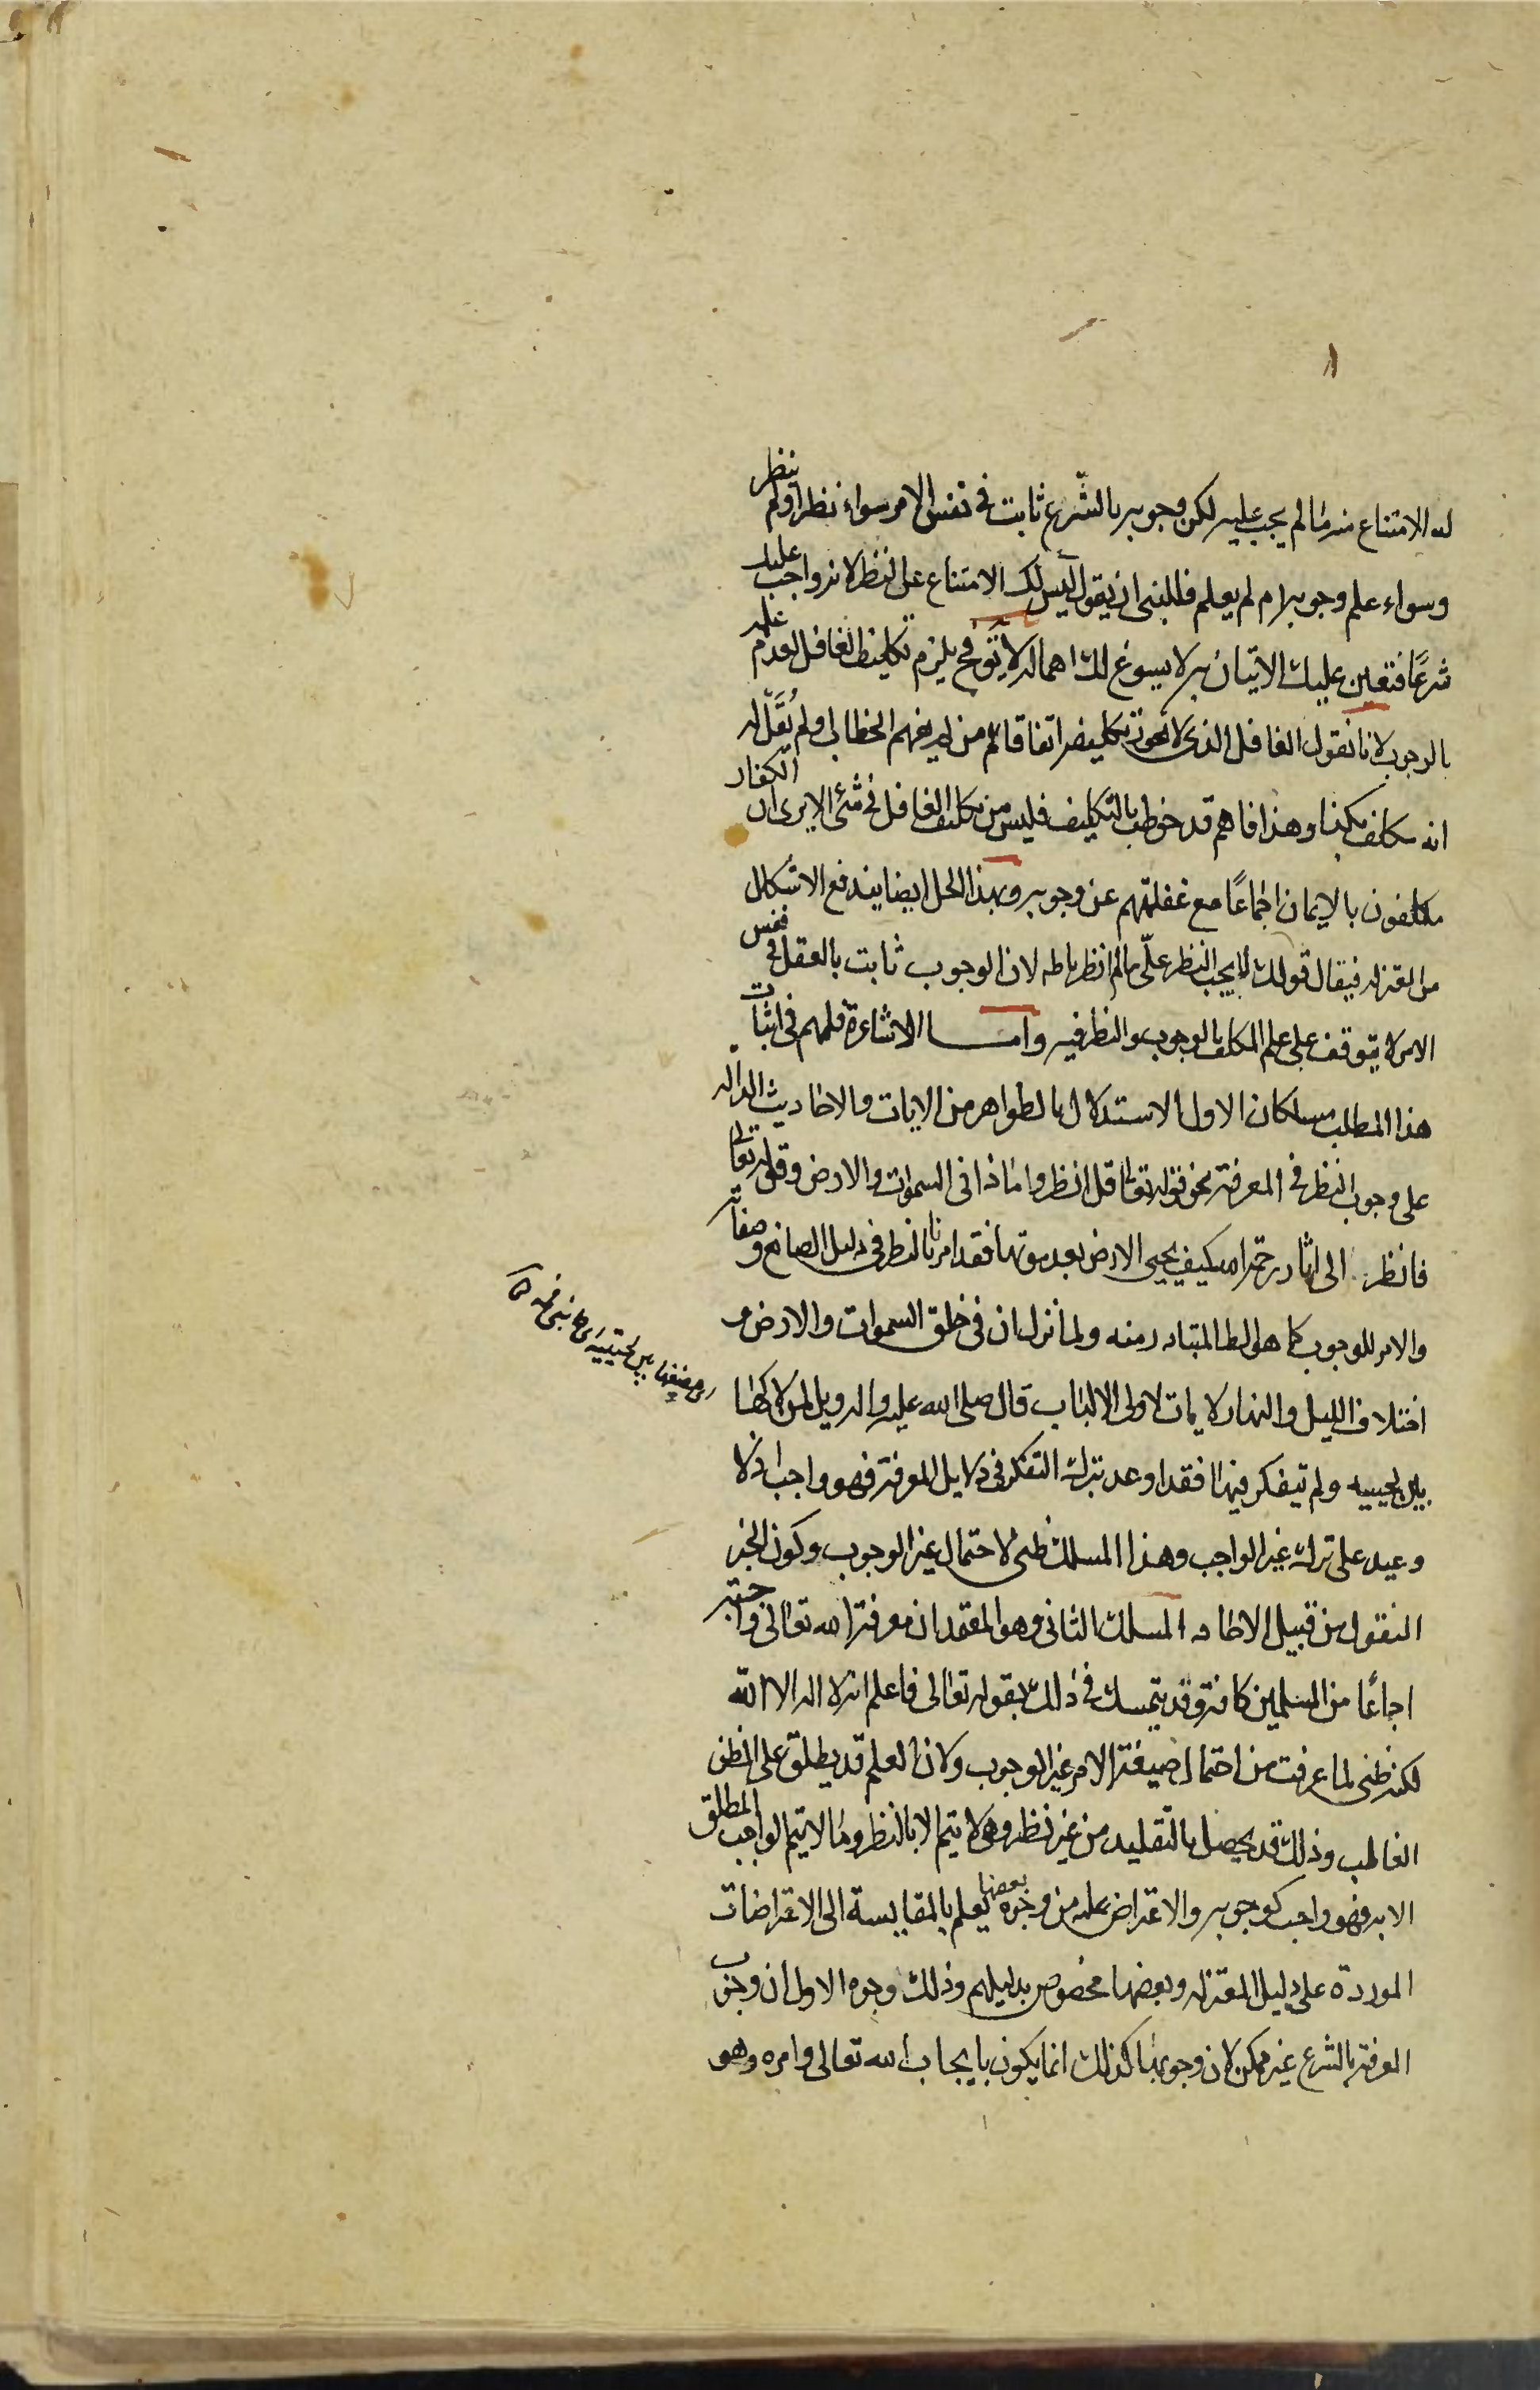 له الامتناع منه ما لم يجب عليه لكن وجوبه بالشّرع ثابت في نفس الامر سواء نظر او لم ينظر
وسواء علم وجوبه ام لم يعلم فللنبى ان يقول ليس لك الامتناع على النظر لانه واجب عليك
شرعًا فتعين عليك الاتيان به لا يسوغ لك اهماله لا يق فح يلزم تكليف الغافل لعدم علمه
بالوجوب لانا نقول الغافل الذى لا يجوز تكليفه اتفاقا هم من لم يفهم الخطاب او لم يُقَل له
انه مكلف بكذا وهذا فاهم قد خوطب بالتكليف فليس من تكليف الغافل في شئ الا يرى ان الكفار
مكلفون بالايمان اجماعًا مع غفلتهم عن وجوبه وبهذا الحل ايضا يندفع الاشكال
من المعتزله فيقال قولك لا يجب النظر علىّ ما لم انظر باطه لان الوجوب ثابت بالعقل في نفس
الامر لا يتوقف على علم المكلف بالوجوب والنظر فيه وامـــا الاشاعرة فلهم في اثبات
هذا المطلب مسلكان الاول الاستدلال بالظواهر من الايات والاحاديث الداله
على وجوب النظر في المعرفة نحو قوله تعالى قل انظروا ماذا فى السموات والارض وقوله تعالى
فانظر الى اثار رحمة الله كيف يحيى الارض بعد موتها فقد امرنا بالنظر فى دليل الصانع وصفاته
والامر للوجوب كما هو الظا المتبادر منه ولما نزل ان في خلق السموات والارض و
اختلاف الليل والنهار لايات لاولى الالباب قال صلى الله عليه واله ويل لمن لاكها
بين لحييه ولم يتفكر فيها فقد اوعد بترك التفكر فى دلايل المعرفة فهو واجب اذ لا
وعيد على ترك غير الواجب وهذا المسلك ظنى لاحتمال غير الوجوب وكون الخبر
المنقول من قبيل الاحاد المسلك الثانى وهو المعتمد ان معرفة الله تعالى واجبة
اجماعًا من المسلمين كافة وقد يتمسك فى ذلك بقوله تعالى فاعلم انه لا اله الا الله
لكنه ظنى لما عرفت من احتمال صيغة الامر غير الوجوب ولان العلم قد يطلق على الظن
الغالب وذلك قد يحصل بالتقليد من غير نظر وهى لا يتم الا بالنظر وما لا يتم الواجب المطلق
الا به فهو واجب كوجوبه والاعتراض عليه من وجوه بعضها يعلم بالمقايسة الى الاعتراضات
الموردة على دليل المعتزله وبعضها مخصوص بدليلهم وذلك وجوه الاول ان وجوب
المعرفة بالشرع غير ممكن لان وجوبها كذلك انما يكون بايجاب الله تعالى وامره وهو